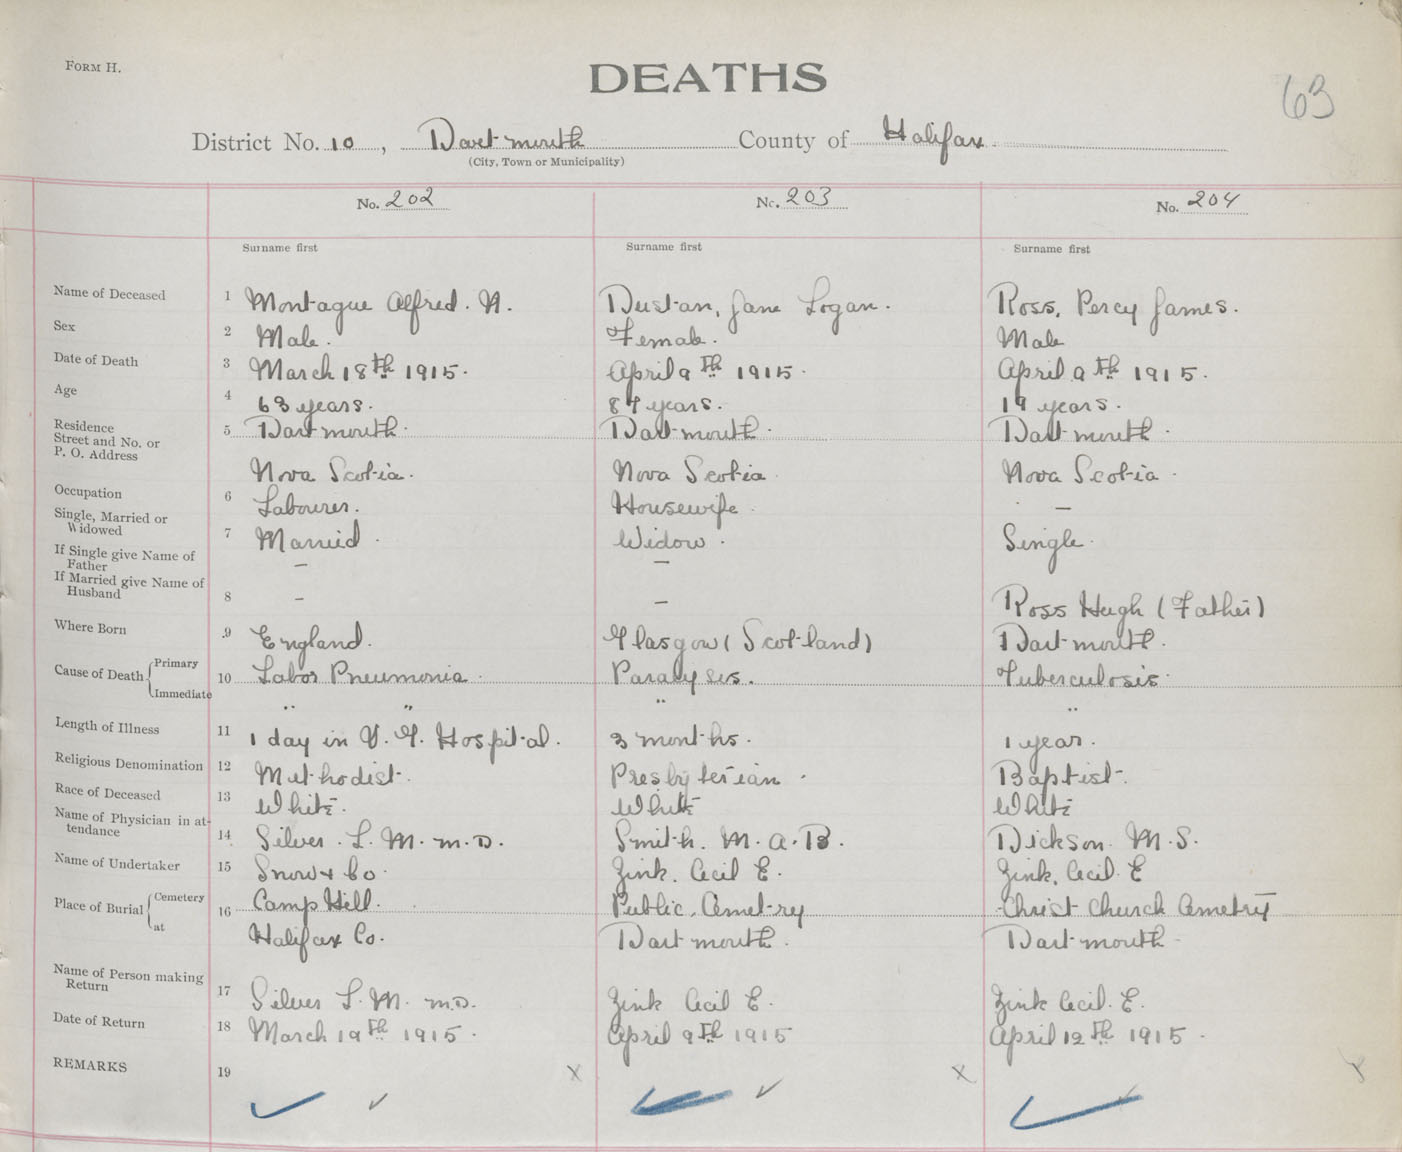 FORM H.
DEATHS
63
District No. 10, Dartmouth County of Halifax
(City, Town or Municipality)
No. 202 No. 203 No. 204
Surname first Surname first Surname first
Name of Deceased 1 Montague Alfred. N. Dustan, Jane Logan. Ross, Percy James.
Sex 2 Male. Female. Male
Date of Death 3 March 18th 1915. April 9th 1915. April 9th 1915.
Age 4 63 years. 87 years. 19 years.
Residence Street and No. or P. O. Address 5 Dartmouth. Dartmouth. Dartmouth.
Nova Scotia. Nova Scotia. Nova Scotia.
Occupation 6 Labourer. Housewife. —
Single, Married or Widowed 7 Married. Widow. Single.
If Single give Name of Father — —
If Married give Name of Husband 8 — — Ross Hugh (Father)
Where Born 9 England. Glasgow (Scotland) Dartmouth.
Cause of Death Primary 10 Labor Pneumonia. Paralysis. Tuberculosis.
Immediate " " " "
Length of Illness 11 1 day in V. G. Hospital. 3 months. 1 year.
Religious Denomination 12 Methodist. Presbyterian. Baptist.
Race of Deceased 13 White. White White
Name of Physician in attendance 14 Silver. L. M. M.D. Smith. M. A. B. Dickson. M. S.
Name of Undertaker 15 Snow & Co. Zink. Cecil E. Zink, Cecil. E
Place of Burial Cemetery 16 Camp Hill. Public. Cemetry Christ Church Cemetry
at Halifax Co. Dartmouth. Dartmouth.
Name of Person making Return 17 Silver L. M. M.D. Zink Cecil E. Zink Cecil. E.
Date of Return 18 March 19th 1915. April 9th 1915 April 12th 1915.
REMARKS 19 x x x